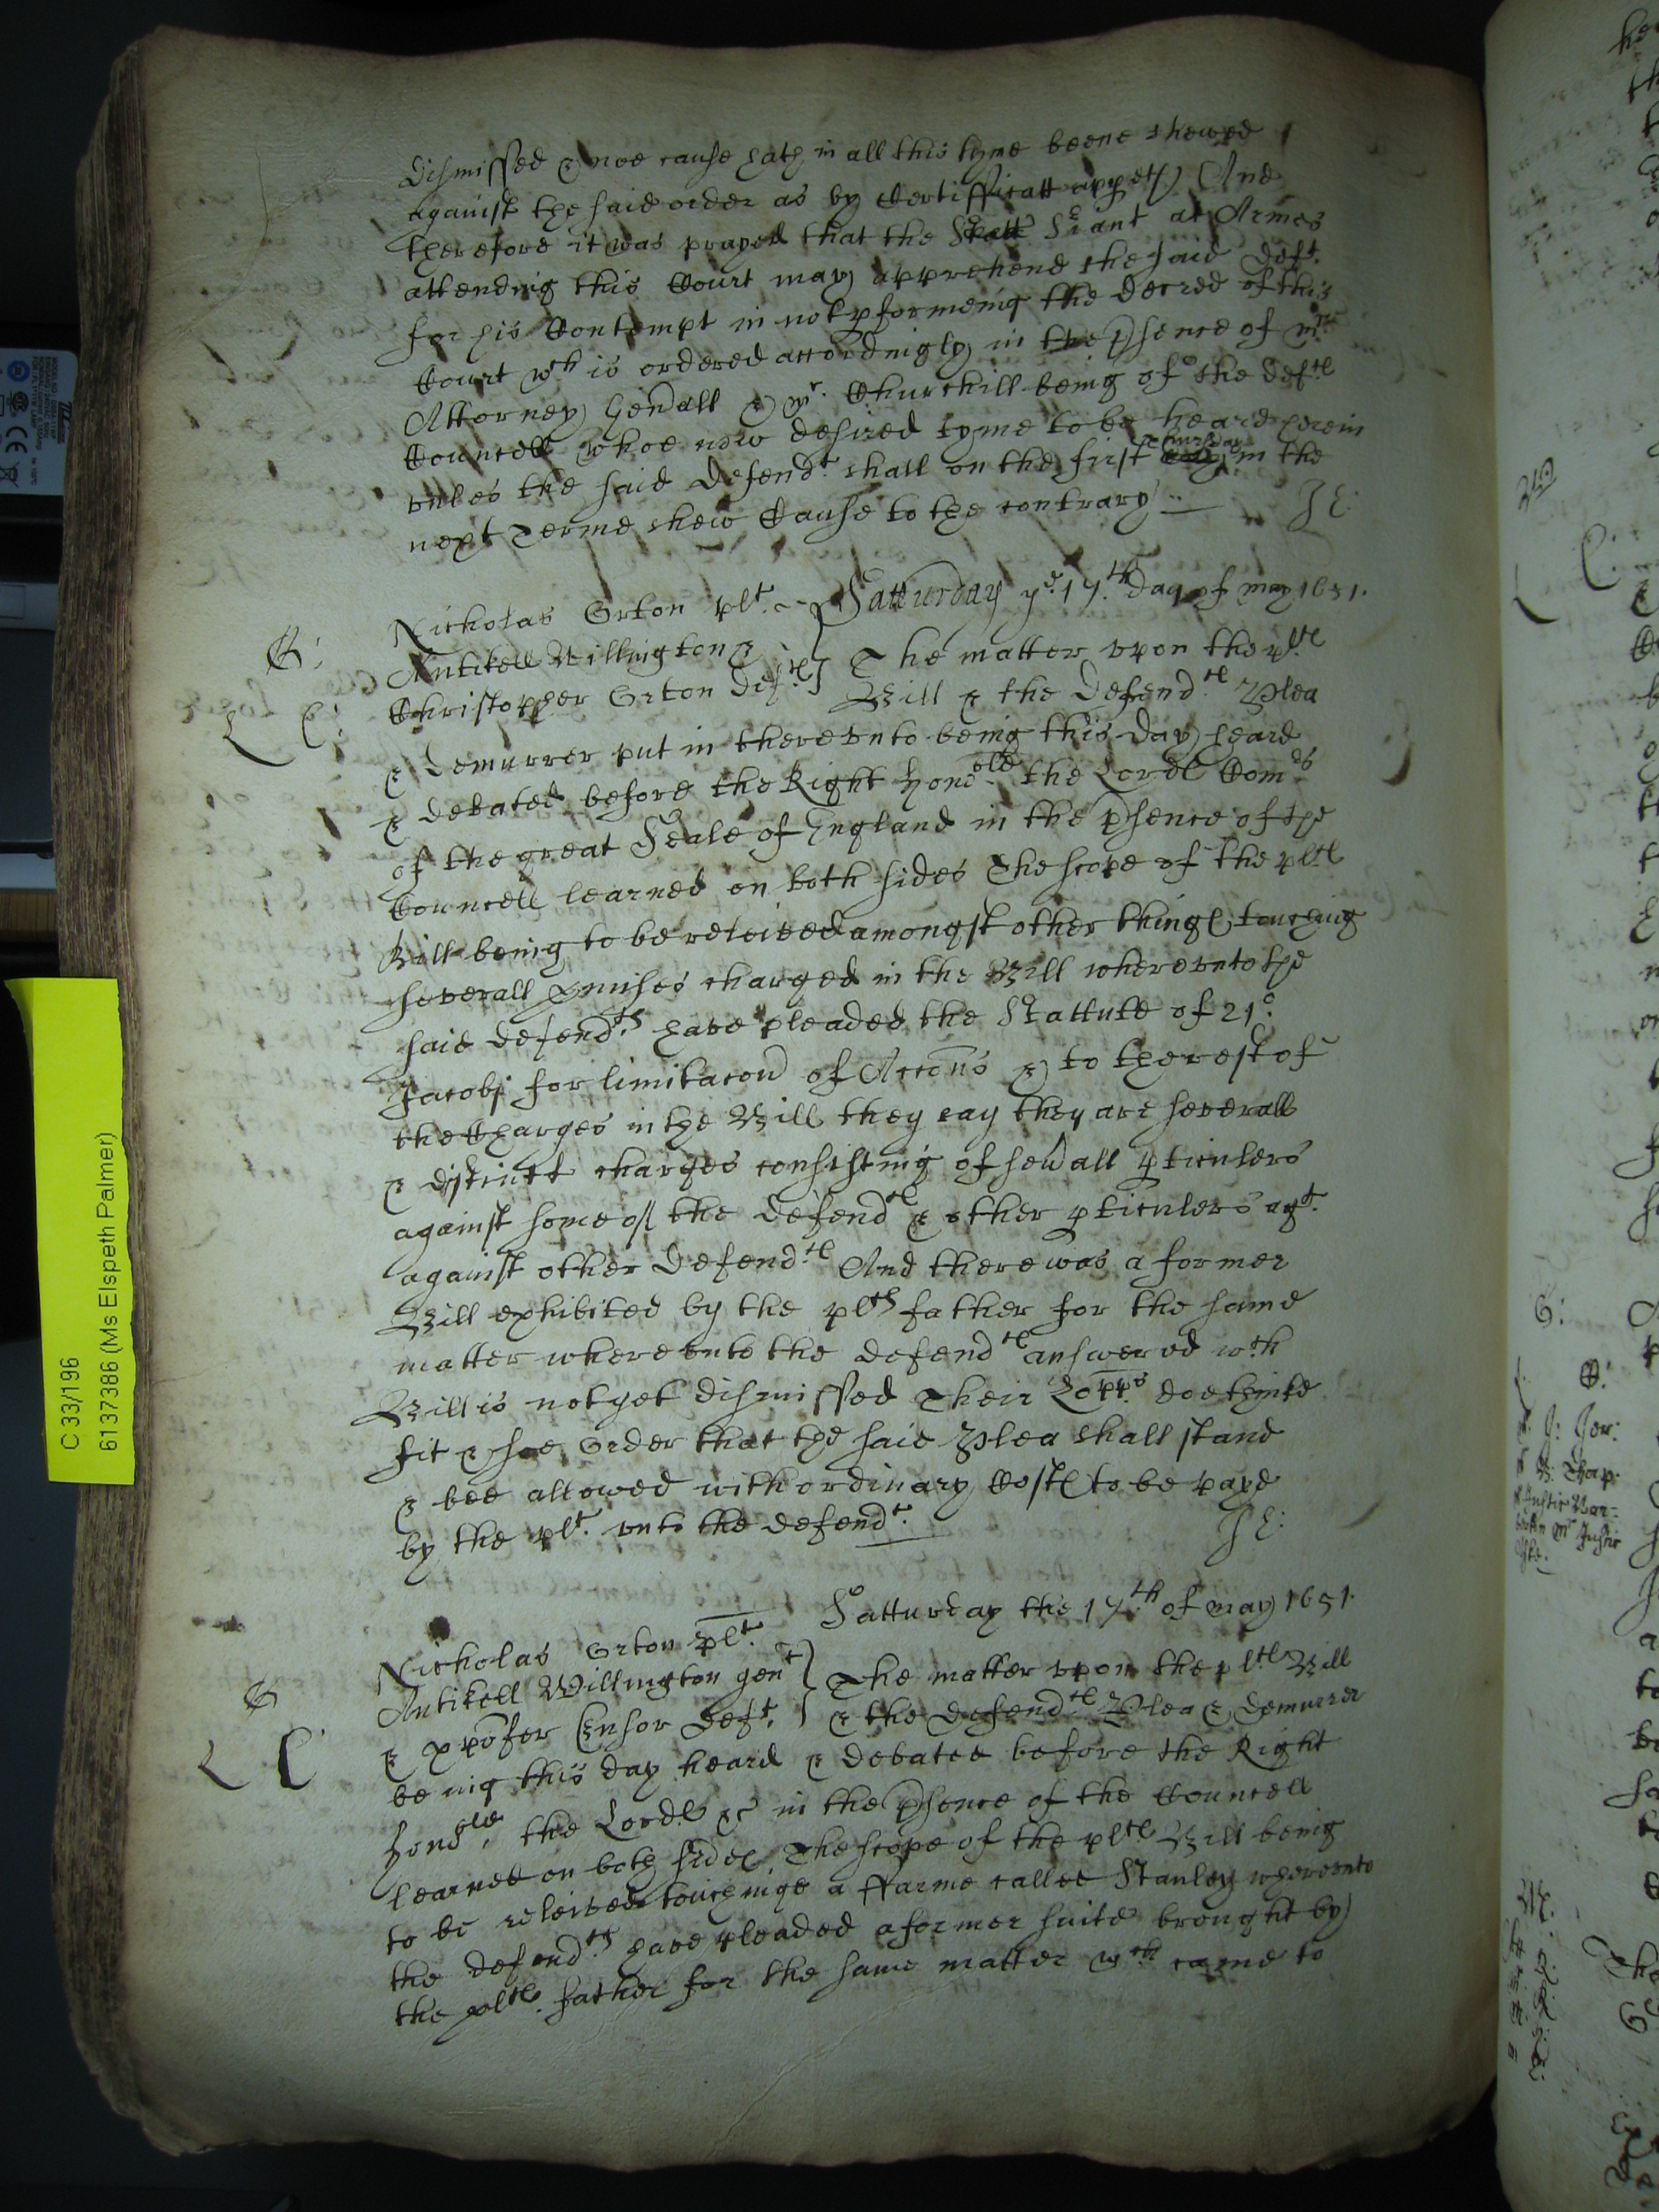 dismissed & noe cause hath in all this tyme beene shewed
against the said order as by Certifficatt appeth And
therefore it was prayed that the Sriant at Armes
attending this Court may apprehend the said Deft.
for his Contempt in not pformeing the decree of this
Court wch is ordered accordingly in the psence of mr.
Attorney Genall & mr. Churchill being of the deftes
Councell whoe now desired tyme to be heard herein
unles the said Defendt. shall on the first Thursday in the
next Terme shew Cause to the contrary
J E:
Nicholas Orton plt. Satturday ye. 17.th day of may 1651.
Antikell Willington & The matter upon the pltes
Christopher Orton deftes Bill & the Defend.tes Plea
& Demurrer put in thereunto being this day heard
& debated before the Right honoble the Lordes Comrs
of the great Seale of England in the psence of the
Councell learned on both sides The scope of the pltes
Bill being to be releived amongst other thinges touching
severall pmises charged in the Bill whereunto the
said defendts. have pleaded the Stattute of 21o.
Jacobj for limitacon of Accons & to the rest of
the Charges in the Bill they say they are severall
& distinct charges consisting of sevall pticulers
against some of the defendtes & other pticulers agt.
against other Defend.tes And there was a former
Bill exhibited by the plts father for the same
matter whereunto the defendtes answered wch
Bill is not yet dismissed Their Lopps. doe thinke
fit & soe Order that the said Plea shall stand
& bee allowed with ordinary Costes to be payd
by the plt. unto the defendt.
J E:
Satturday the 17.th of may 1651.
Nicholas Orton plt.
Antikell Willington gent The matter upon the pltes Bill
& xpofer Ensor Deft. & the defendtes Plea & Demurrer
being this day heard & debated before the Right
honoble. the Lordes &c in the psence of the Councell
learned on both sides, The scope of the pltes Bill being
to be releived touchinge a ffarme called Stanley whereunto
the defend.ts have pleaded a former suite brought by
the pltes. father for the same matter wch came to
C 33/196
6137386 (Ms Elspeth Palmer)